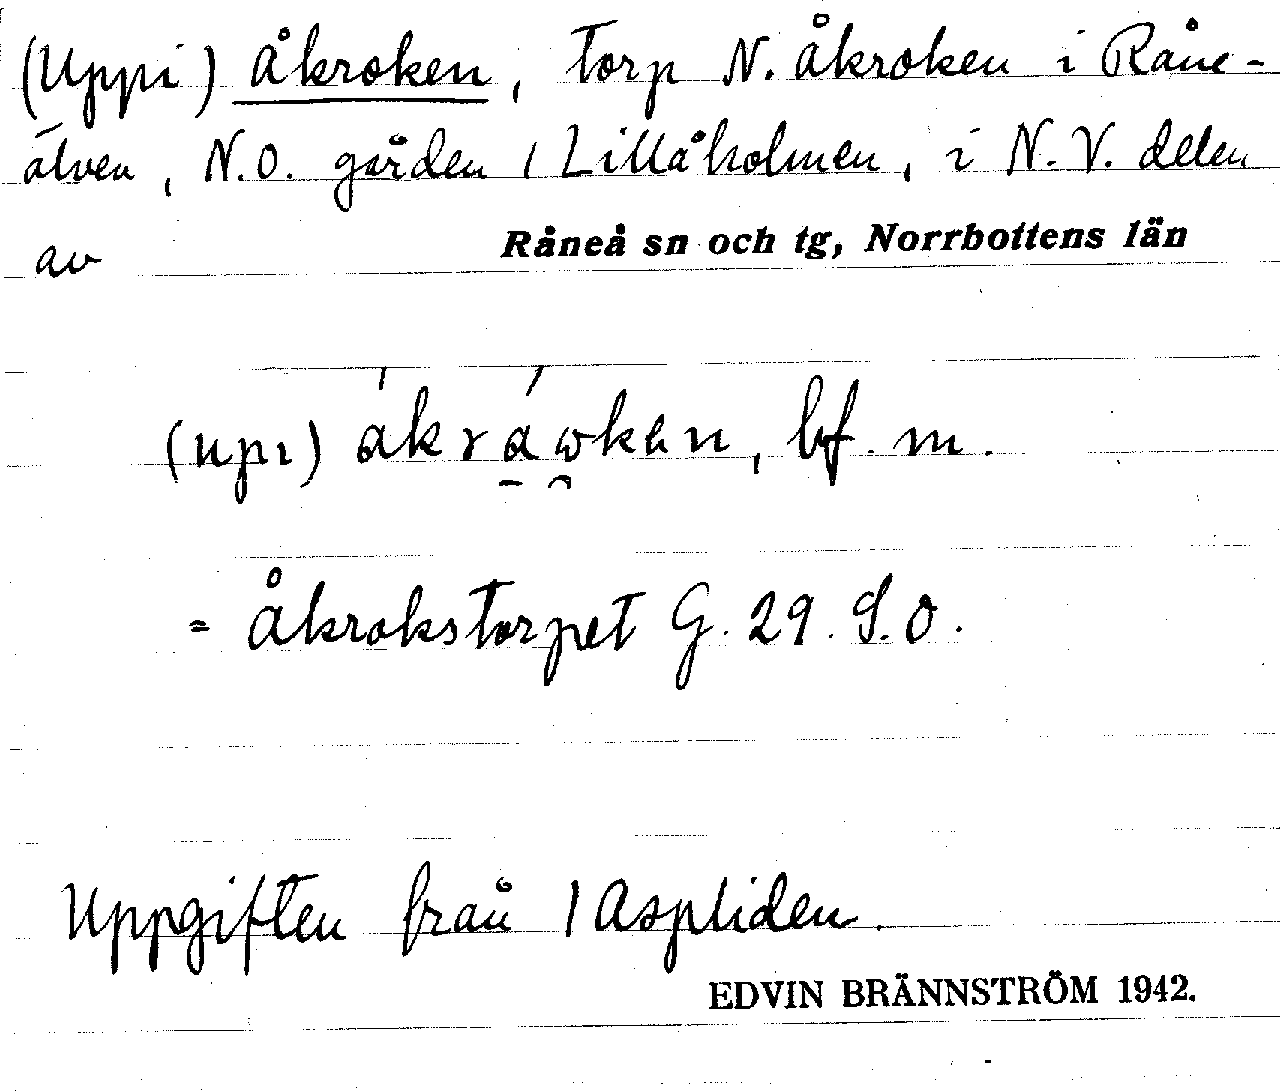 (Uppi) Åkroken, torp N. åkroken i Råne-
älven, N.O. gården / Lillåholmen, i N.V. delen
av Råneå sn och tg, Norrbottens län
bf. m.
= Åkrokstorpet G. 29. S.O.
Uppgiften från / Aspliden.
EDVIN BRÄNNSTRÖM 1942.